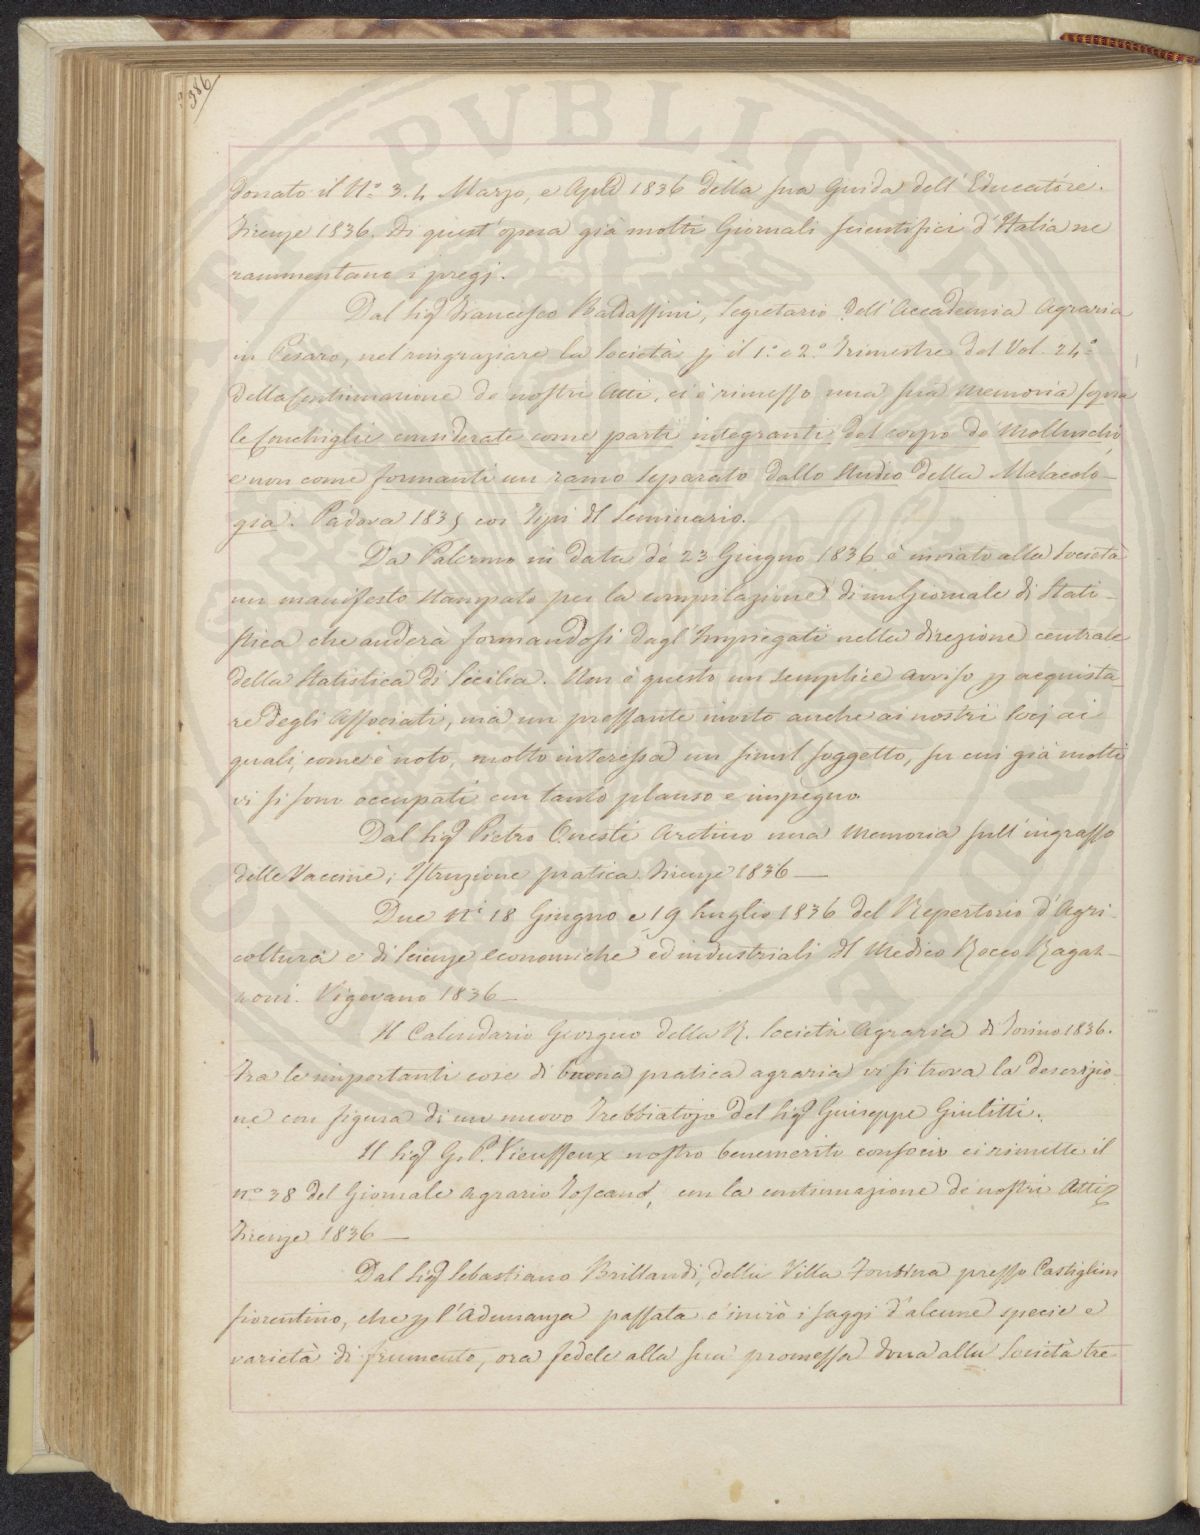 386
donato il N.° 3. 4 Marzo, e Aple 1836 della sua Guida dell'Educatore.
Firenze 1836. Di quest'opera già molti Giornali scientifici d'Italia ne
rammentano i pregj.
Dal Sig.r Francesco Baldassini, Segretario dell'Accademia Agraria
in Pesaro, nel ringraziare la Società p il 1.° e 2.° Trimestre del Vol. 24.°
della Continuazione de nostri Atti, ci è rimesso una sua Memoria sopra
le Conchiglie considerate come parti integranti del corpo de Molluschi,
e non come formanti un ramo separato dallo Studio della Malacolo-
gia. Padova 1835 coi Tipi dl Seminario.
Da Palermo in data de 23 Giugno 1836 è inviato alla Società
un manifesto stampato per la compilazione di un Giornale di Stati-
stica che anderà formandosi dagl'Impiegati nella direzione centrale
della Statistica di Sicilia. Non è questo un semplice avviso p acquista-
re degli Associati, ma un pressante invito anche ai nostri Socj ai
quali, come è noto, molto interessa un simil soggetto, su cui già molti
vi si sono occupati con tanto plauso e impegno.
Dal Sig.r Pietro Onesti Aretino una Memoria sull'ingrasso
delle Vaccine; Istruzione pratica Firenze 1836 —
Due N.i 18 Giugno e 19 Luglio 1836 del Repertorio d'Agri-
coltura e di Scienze economiche ed industriali dl Medico Rocco Ragaz-
zoni. Vigevano 1836 —
Il Calendario Georgico della R. Società Agraria di Torino 1836.
Tra le importanti cose di buona pratica agraria vi si trova la descrizio-
ne con figura di un nuovo Trebbiatojo del Sig.r Guiseppe Giulitti.
Il Sig.r G. P. Vieusseux nostro benemerito consocio ci rimette il
N.° 38 del Giornale Agrario Toscano, con la continuazione de nostri Atti
Firenze 1836 —
Dal Sig.r Sebastiano Brillandi, della Villa Fontina presso Castiglion
fiorentino, che p l'Adunanza passata c'inviò i saggi d'alcune specie e
varietà di frumento, ora fedele alla sua promessa dona alla Società tre